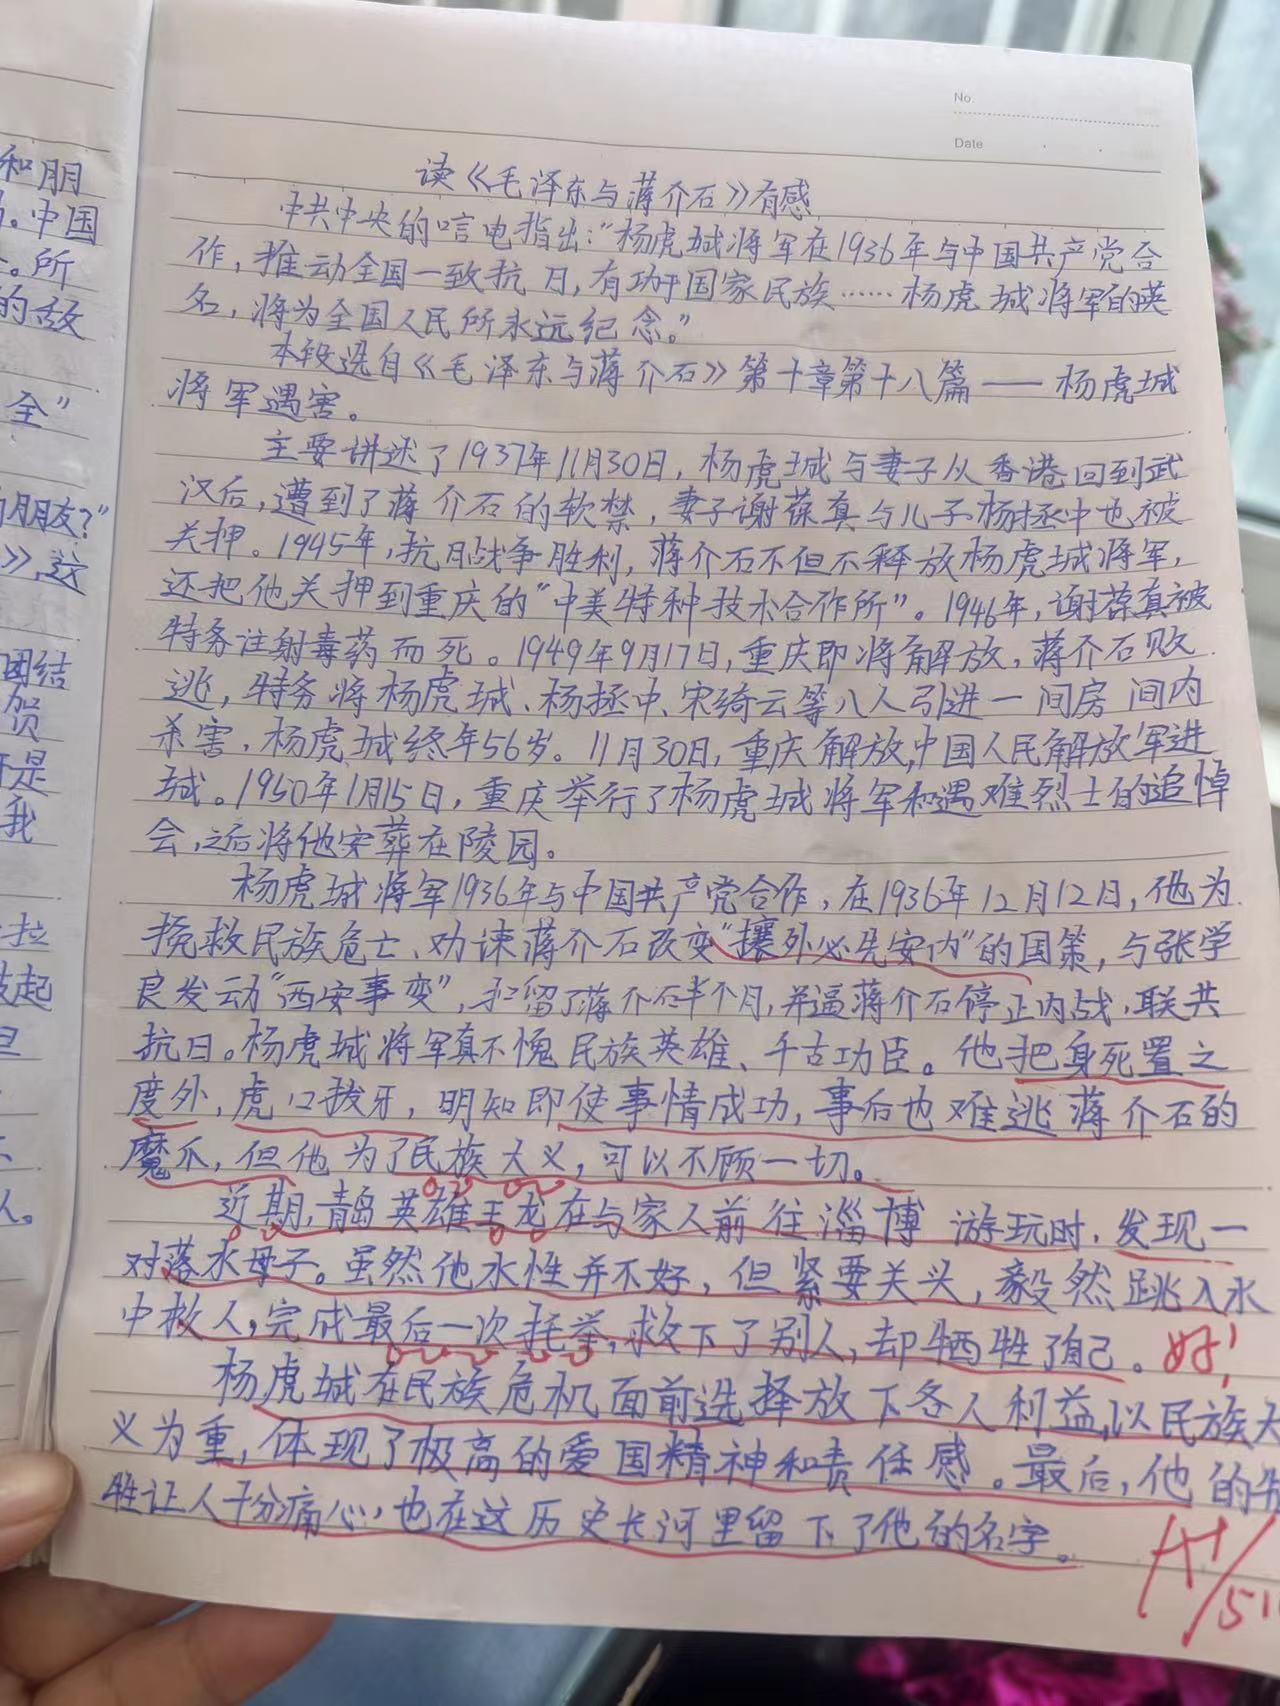 No.
Date
读《毛泽东与蒋介石》有感
中共中央的唁电指出:"杨虎城将军在1936年与中国共产党合
作,推动全国一致抗日,有功于国家民族……杨虎城将军的英
名,将为全国人民所永远纪念。"
本段选自《毛泽东与蒋介石》第十章第十八篇——杨虎城
将军遇害。
主要讲述了1937年11月30日,杨虎城与妻子从香港回到武
汉后,遭到了蒋介石的软禁,妻子谢葆真与儿子杨拯中也被
关押。1945年,抗日战争胜利,蒋介石不但不释放杨虎城将军,
还把他关押到重庆的"中美特种技术合作所"。1946年,谢葆真被
特务注射毒药而死。1949年9月17日,重庆即将解放,蒋介石败
逃,特务将杨虎城、杨拯中、宋绮云等八人引进一间房间内
杀害,杨虎城终年56岁。11月30日,重庆解放,中国人民解放军进
城。1950年1月15日,重庆举行了杨虎城将军和遇难烈士的追悼
会,之后将他安葬在陵园。
杨虎城将军1936年与中国共产党合作,在1936年12月12日,他为
挽救民族危亡、劝谏蒋介石改变"攘外必先安内"的国策,与张学
良发动"西安事变",扣留了蒋介石半个月,并逼蒋介石停止内战,联共
抗日。杨虎城将军真不愧民族英雄、千古功臣。他把身死置之
度外,虎口拔牙,明知即使事情成功,事后也难逃蒋介石的
魔爪,但他为了民族大义,可以不顾一切。
近期,青岛英雄王龙在与家人前往淄博游玩时,发现一
对落水母子。虽然他水性并不好,但紧要关头,毅然跳入水
中救人,完成最后一次托举,救下了别人,却牺牲了自己。好!
杨虎城在民族危机面前选择放下各人利益,以民族大
义为重,体现了极高的爱国精神和责任感。最后,他的牺
牲让人十分痛心,也在这历史长河里留下了他的名字。
和朋
中国
。所
的敌
全"
的朋友?"
》,这
团结
贺
是
我
拉
起